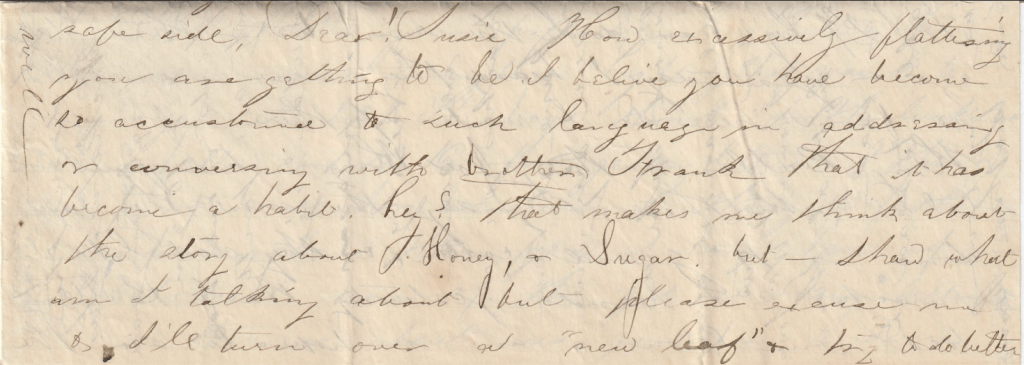 safe side, Dear! Susie How excessively flattering
you are getting to be I belive you have become
so accustomed to such language in addressing
or conversing with brother Frank that it has
become a habit. hey? that makes me think about
the story about Honey, or Sugar. but – Shaw what
am I talking about but please excuse me
& I'le turn over a "new leaf" & try to do better
well